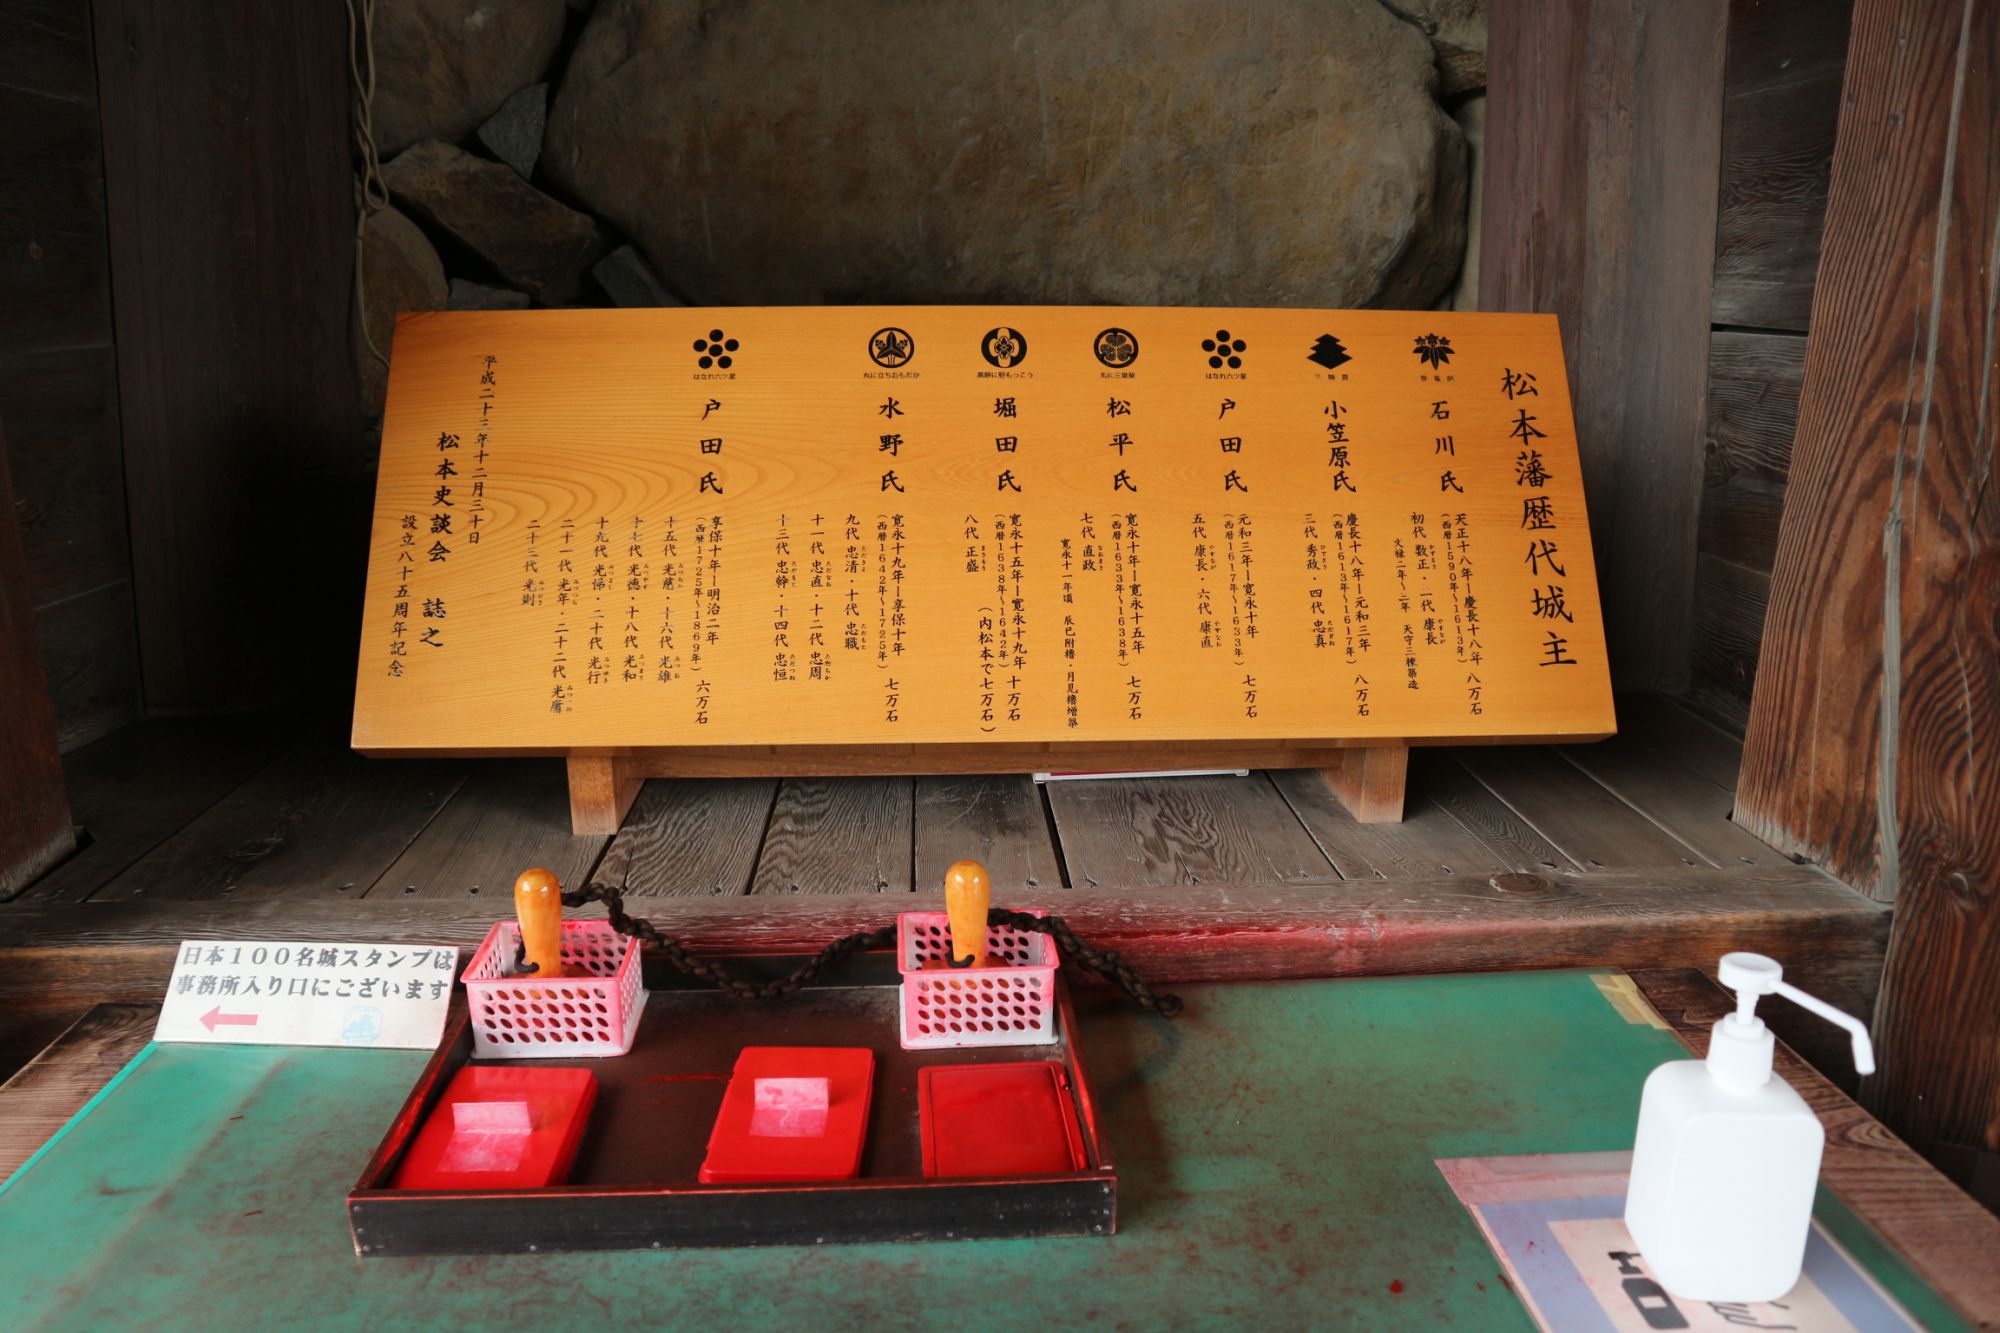 松本藩歴代城主
笹竜胆
石川氏
天正十八年ー慶長十八年 八万石
(西暦1590年~1613年)
初代 数正・二代 康長
かずまさ やすなが
文禄二年~三年 天守三棟築造
三階菱
小笠原氏
慶長十八年ー元和三年 八万石
(西暦1613年~1617年)
三代 秀政・四代 忠真
ひでまさ ただざね
はなれ六ツ星
戸田氏
元和三年ー寛永十年 七万石
(西暦1617年~1633年)
五代 康長・六代 康直
やすなが やすなお
丸に三葉葵
松平氏
寛永十年ー寛永十五年 七万石
(西暦1633年~1638年)
七代 直政
なおまさ
寛永十一年頃 辰巳附櫓・月見櫓増築
黒餅に竪もっこう
堀田氏
寛永十五年ー寛永十九年 十万石
(西暦1638年~1642年) (内松本で七万石)
八代 正盛
まさもり
丸に立ちおもだか
水野氏
寛永十九年ー享保十年 七万石
(西暦1642年~1725年)
九代 忠清・十代 忠職
ただきよ ただもと
十一代 忠直・十二代 忠周
ただなお ただちか
十三代 忠幹・十四代 忠恒
ただもと ただつね
はなれ六ツ星
戸田氏
享保十年ー明治二年 六万石
(西暦1725年~1869年)
十五代 光慈・十六代 光雄
みつちか みつお
十七代 光徳・十八代 光和
みつやす みつまさ
十九代 光悌・二十代 光行
みつよし みつゆき
二十一代 光年・二十二代 光庸
みつつら みつつね
二十三代 光則
みつひさ
平成二十三年十二月三十日
松本史談会 誌之
設立八十五周年記念
日本100名城スタンプは
事務所入り口にございます